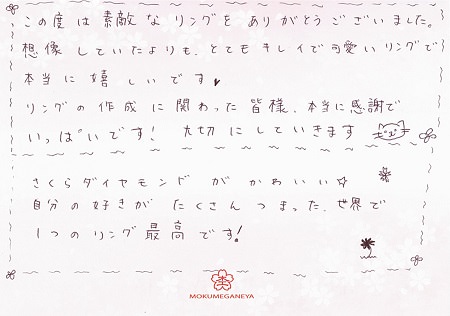 この度は素敵なリングをありがとうございました。
想像していたよりも、とてもキレイで可愛いリングで
本当に嬉しいです♥
リングの作成に関わった皆様、本当に感謝で
いっぱいです! 大切にしていきます
さくらダイヤモンドがかわいい☆
自分の好きがたくさんつまった、世界で
1つのリング最高です!
MOKUMEGANEYA